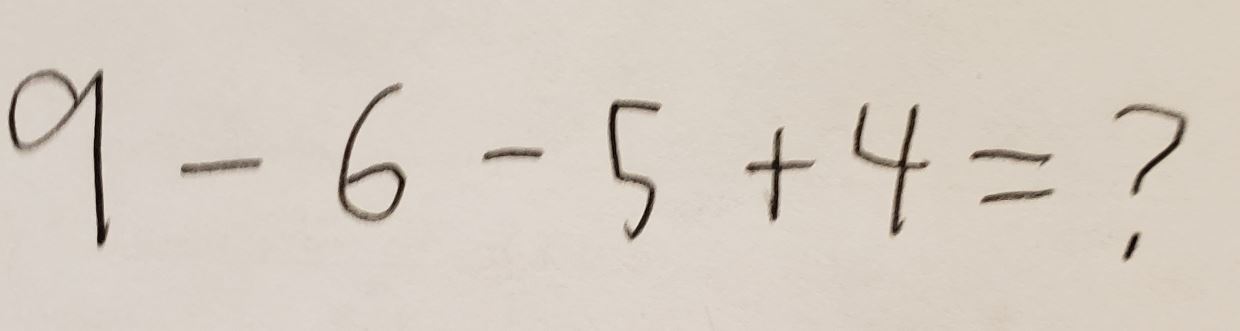 9 - 6 - 5 + 4 = ?